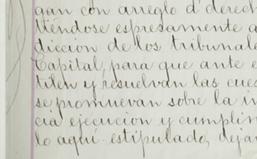 gan con arreglo á derech
tiéndose espresamente a
diccion de los tribunale
Capital, para que ante e
tilen y resuelvan las cues
se promuevan sobre la in
cia ejecucion y cumplim
lo aquí estipulado, dejan